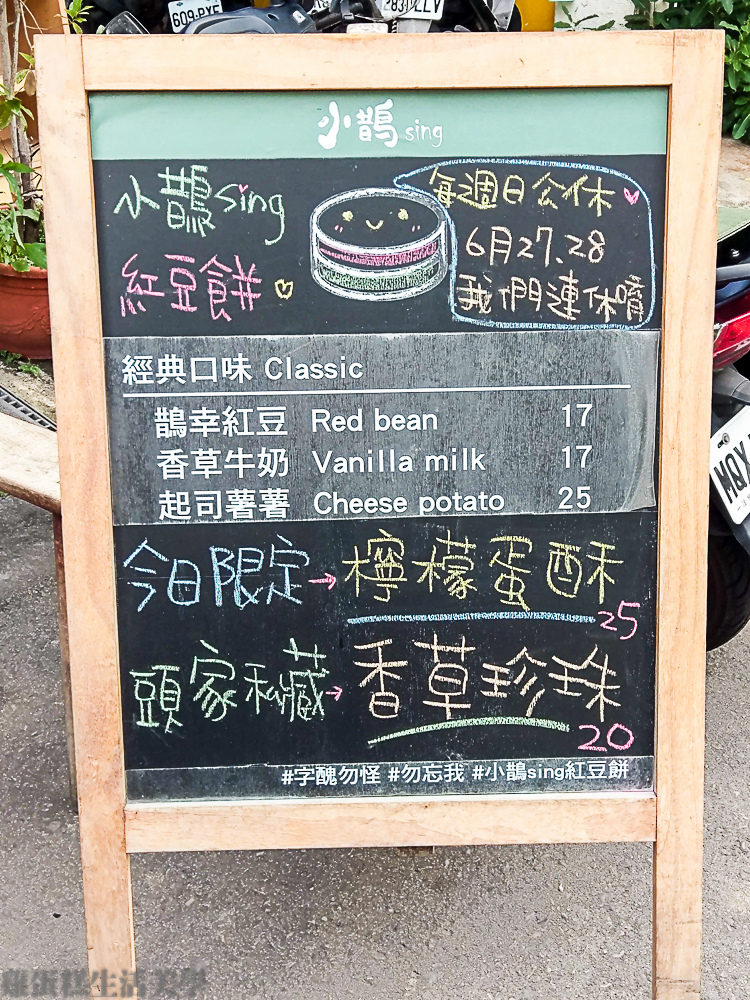 609·PYF
小鵲sing
小鵲sing
紅豆餅
每週日公休
6月27、28
我們連休唷
經典口味 Classic
鵲幸紅豆 Red bean 17
香草牛奶 Vanilla milk 17
起司薯薯 Cheese potato 25
今日限定→檸檬蛋酥
25
頭家私藏→香草珍珠
20
#字醜勿怪 #勿忘我 #小鵲sing紅豆餅
MQY
雞蛋糕生活美學